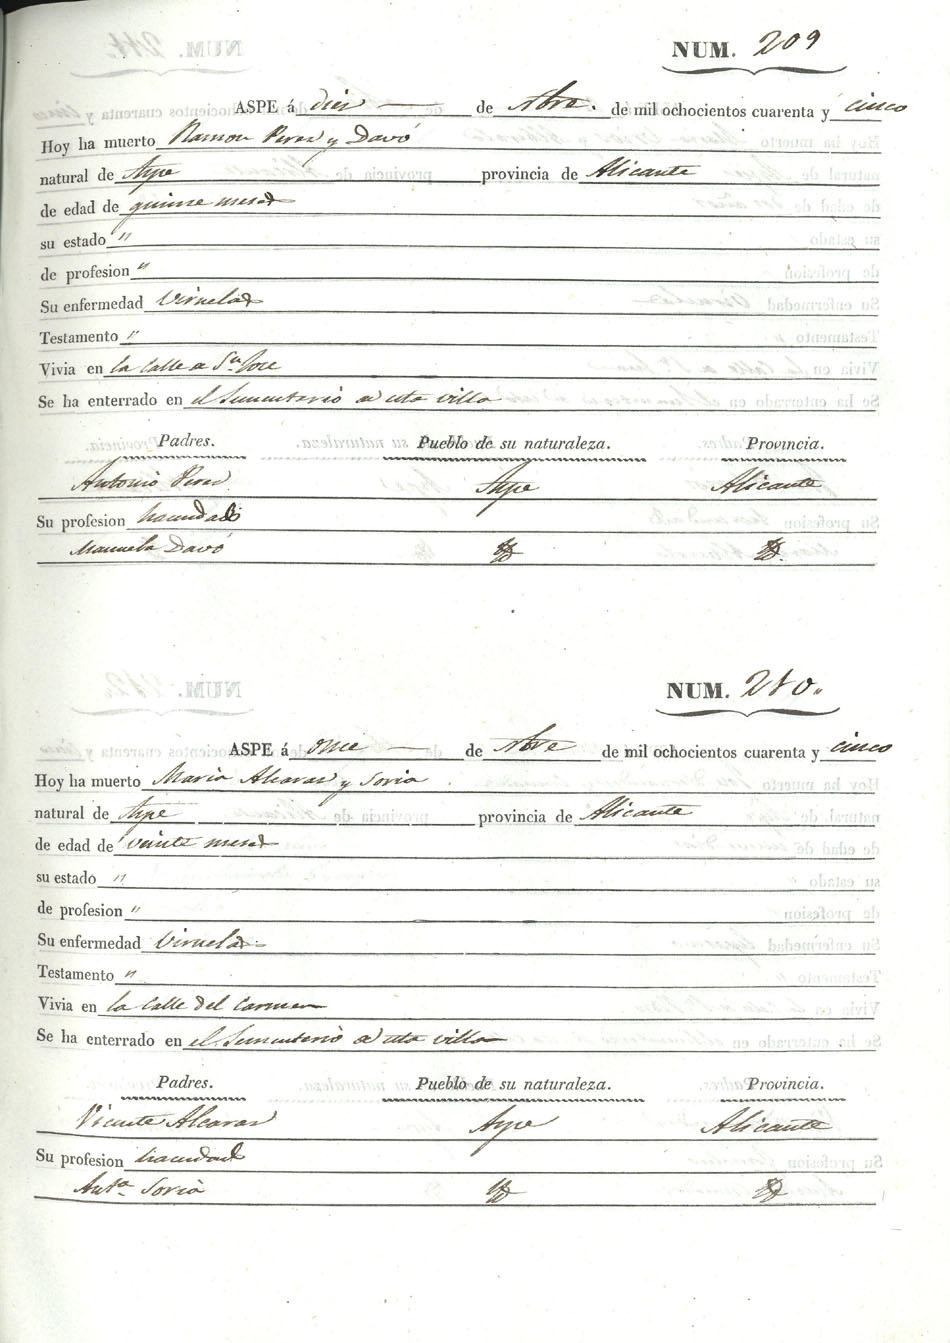 NUM. 209
ASPE á diez de Nbre. de mil ochocientos cuarenta y cinco
Hoy ha muerto Ramon Perez y Davó
natural de Aspe provincia de Alicante
de edad de quinse meses
su estado "
de profesion "
Su enfermedad Viruelas
Testamento "
Vivia en la Calle de Sn. Jose
Se ha enterrado en el Sementerio de esta villa
Padres. Pueblo de su naturaleza. Provincia.
Antonio Perez Aspe Alicante
Su profesion hacendado
Manuela Davó
NUM. 210.
ASPE á onse de Nbre de mil ochocientos cuarenta y cinco
Hoy ha muerto Maria Alcaras y Soria
natural de Aspe provincia de Alicante
de edad de veinte meses
su estado "
de profesion "
Su enfermedad Viruelas
Testamento "
Vivia en la Calle del Carmen
Se ha enterrado en el Sementerio de esta villa
Padres. Pueblo de su naturaleza. Provincia.
Vicente Alcaras Aspe Alicante
Su profesion hacendado
Anta. Soria